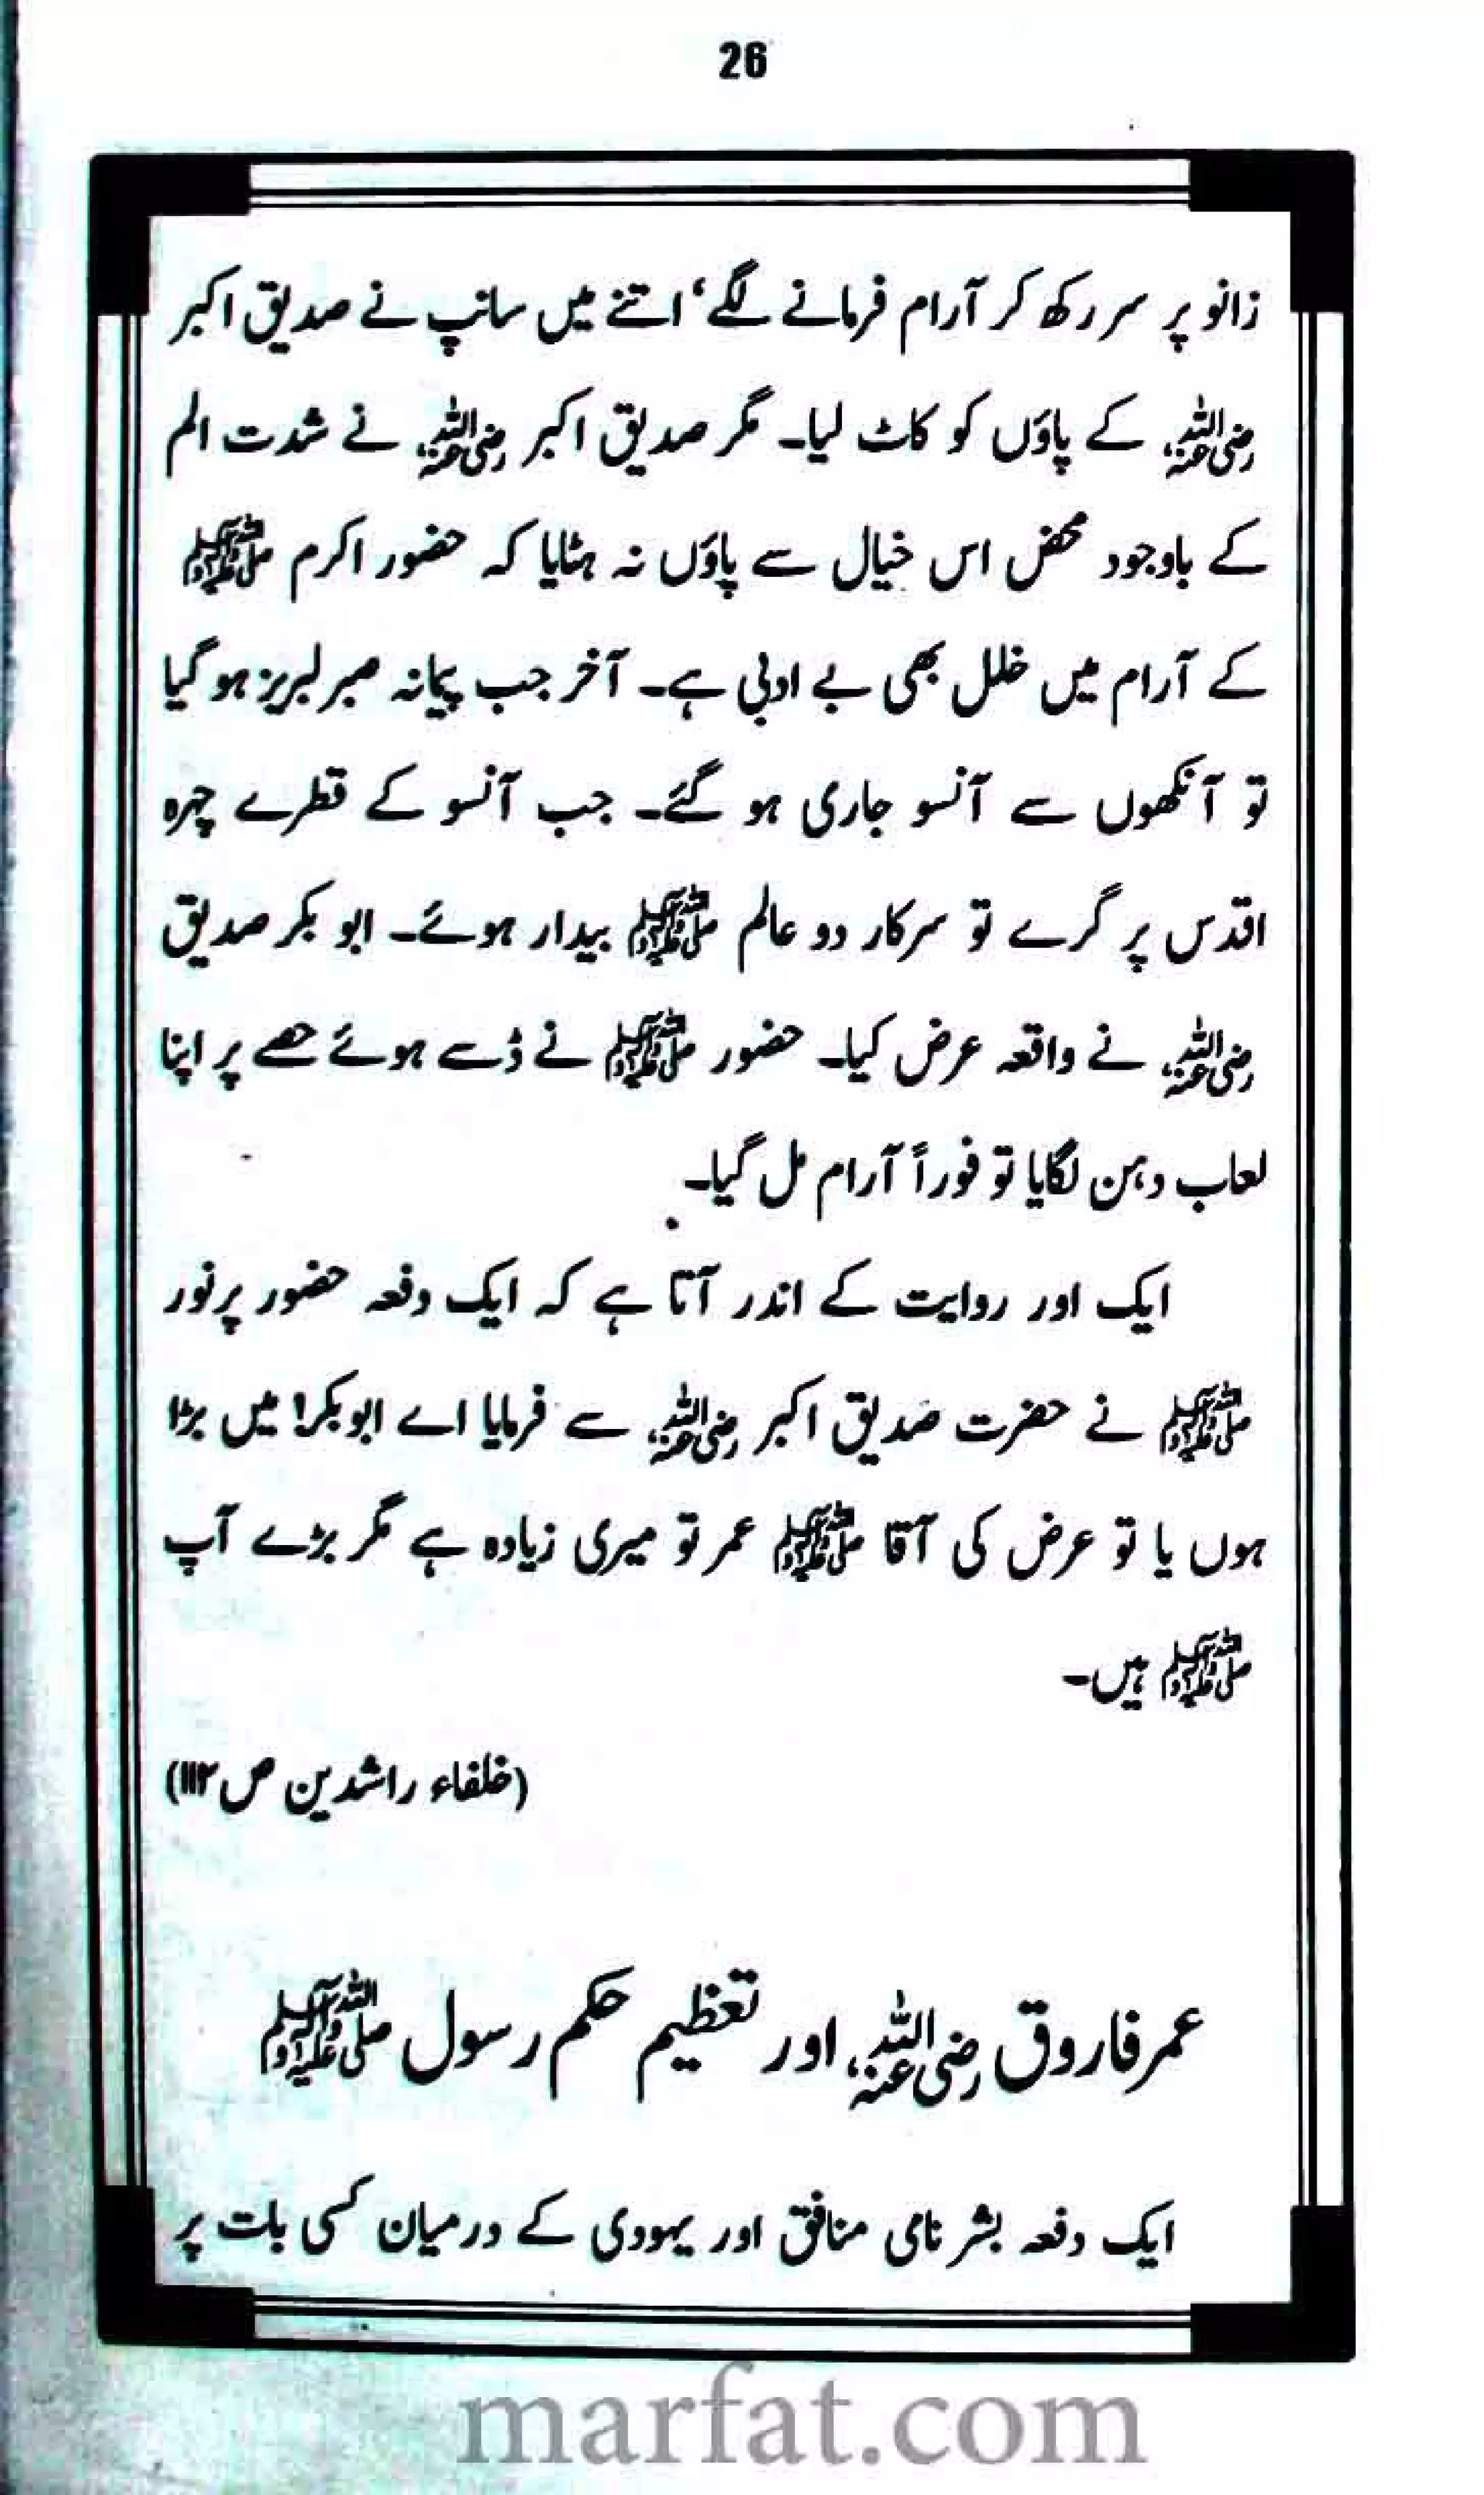 26
زانو پر سر رکھ کر آرام فرمانے لگے، اتنے میں سانپ نے صدیق اکبر
رضی اللہ عنہ کے پاؤں کو کاٹ لیا۔ مگر صدیق اکبر رضی اللہ عنہ نے شدت الم
کے باوجود محض اس خیال سے پاؤں نہ ہٹایا کہ حضور اکرم ﷺ
کے آرام میں خلل بھی بے ادبی ہے۔ آخر جب پیمانہ صبر لبریز ہو گیا
تو آنکھوں سے آنسو جاری ہو گئے۔ جب آنسو کے قطرے چہرہ
اقدس پر گرے تو سرکار دو عالم ﷺ بیدار ہوئے۔ ابو بکر صدیق
رضی اللہ عنہ نے واقعہ عرض کیا۔ حضور ﷺ نے ڈسے ہوئے حصے پر اپنا
لعاب دہن لگایا تو فوراً آرام مل گیا۔
ایک اور روایت کے اندر آتا ہے کہ ایک دفعہ حضور پرنور
ﷺ نے حضرت صدیق اکبر رضی اللہ عنہ سے فرمایا اے ابوبکر! میں بڑا
ہوں یا تو عرض کی آقا ﷺ عمر تو میری زیادہ ہے مگر بڑے آپ
ﷺ ہیں۔
(خلفاء راشدین ص ۱۱۲)
عمر فاروق رضی اللہ عنہ اور تعظیم حکم رسول ﷺ
ایک دفعہ بشر نامی منافق اور یہودی کے درمیان کسی بات پر
marfat.com